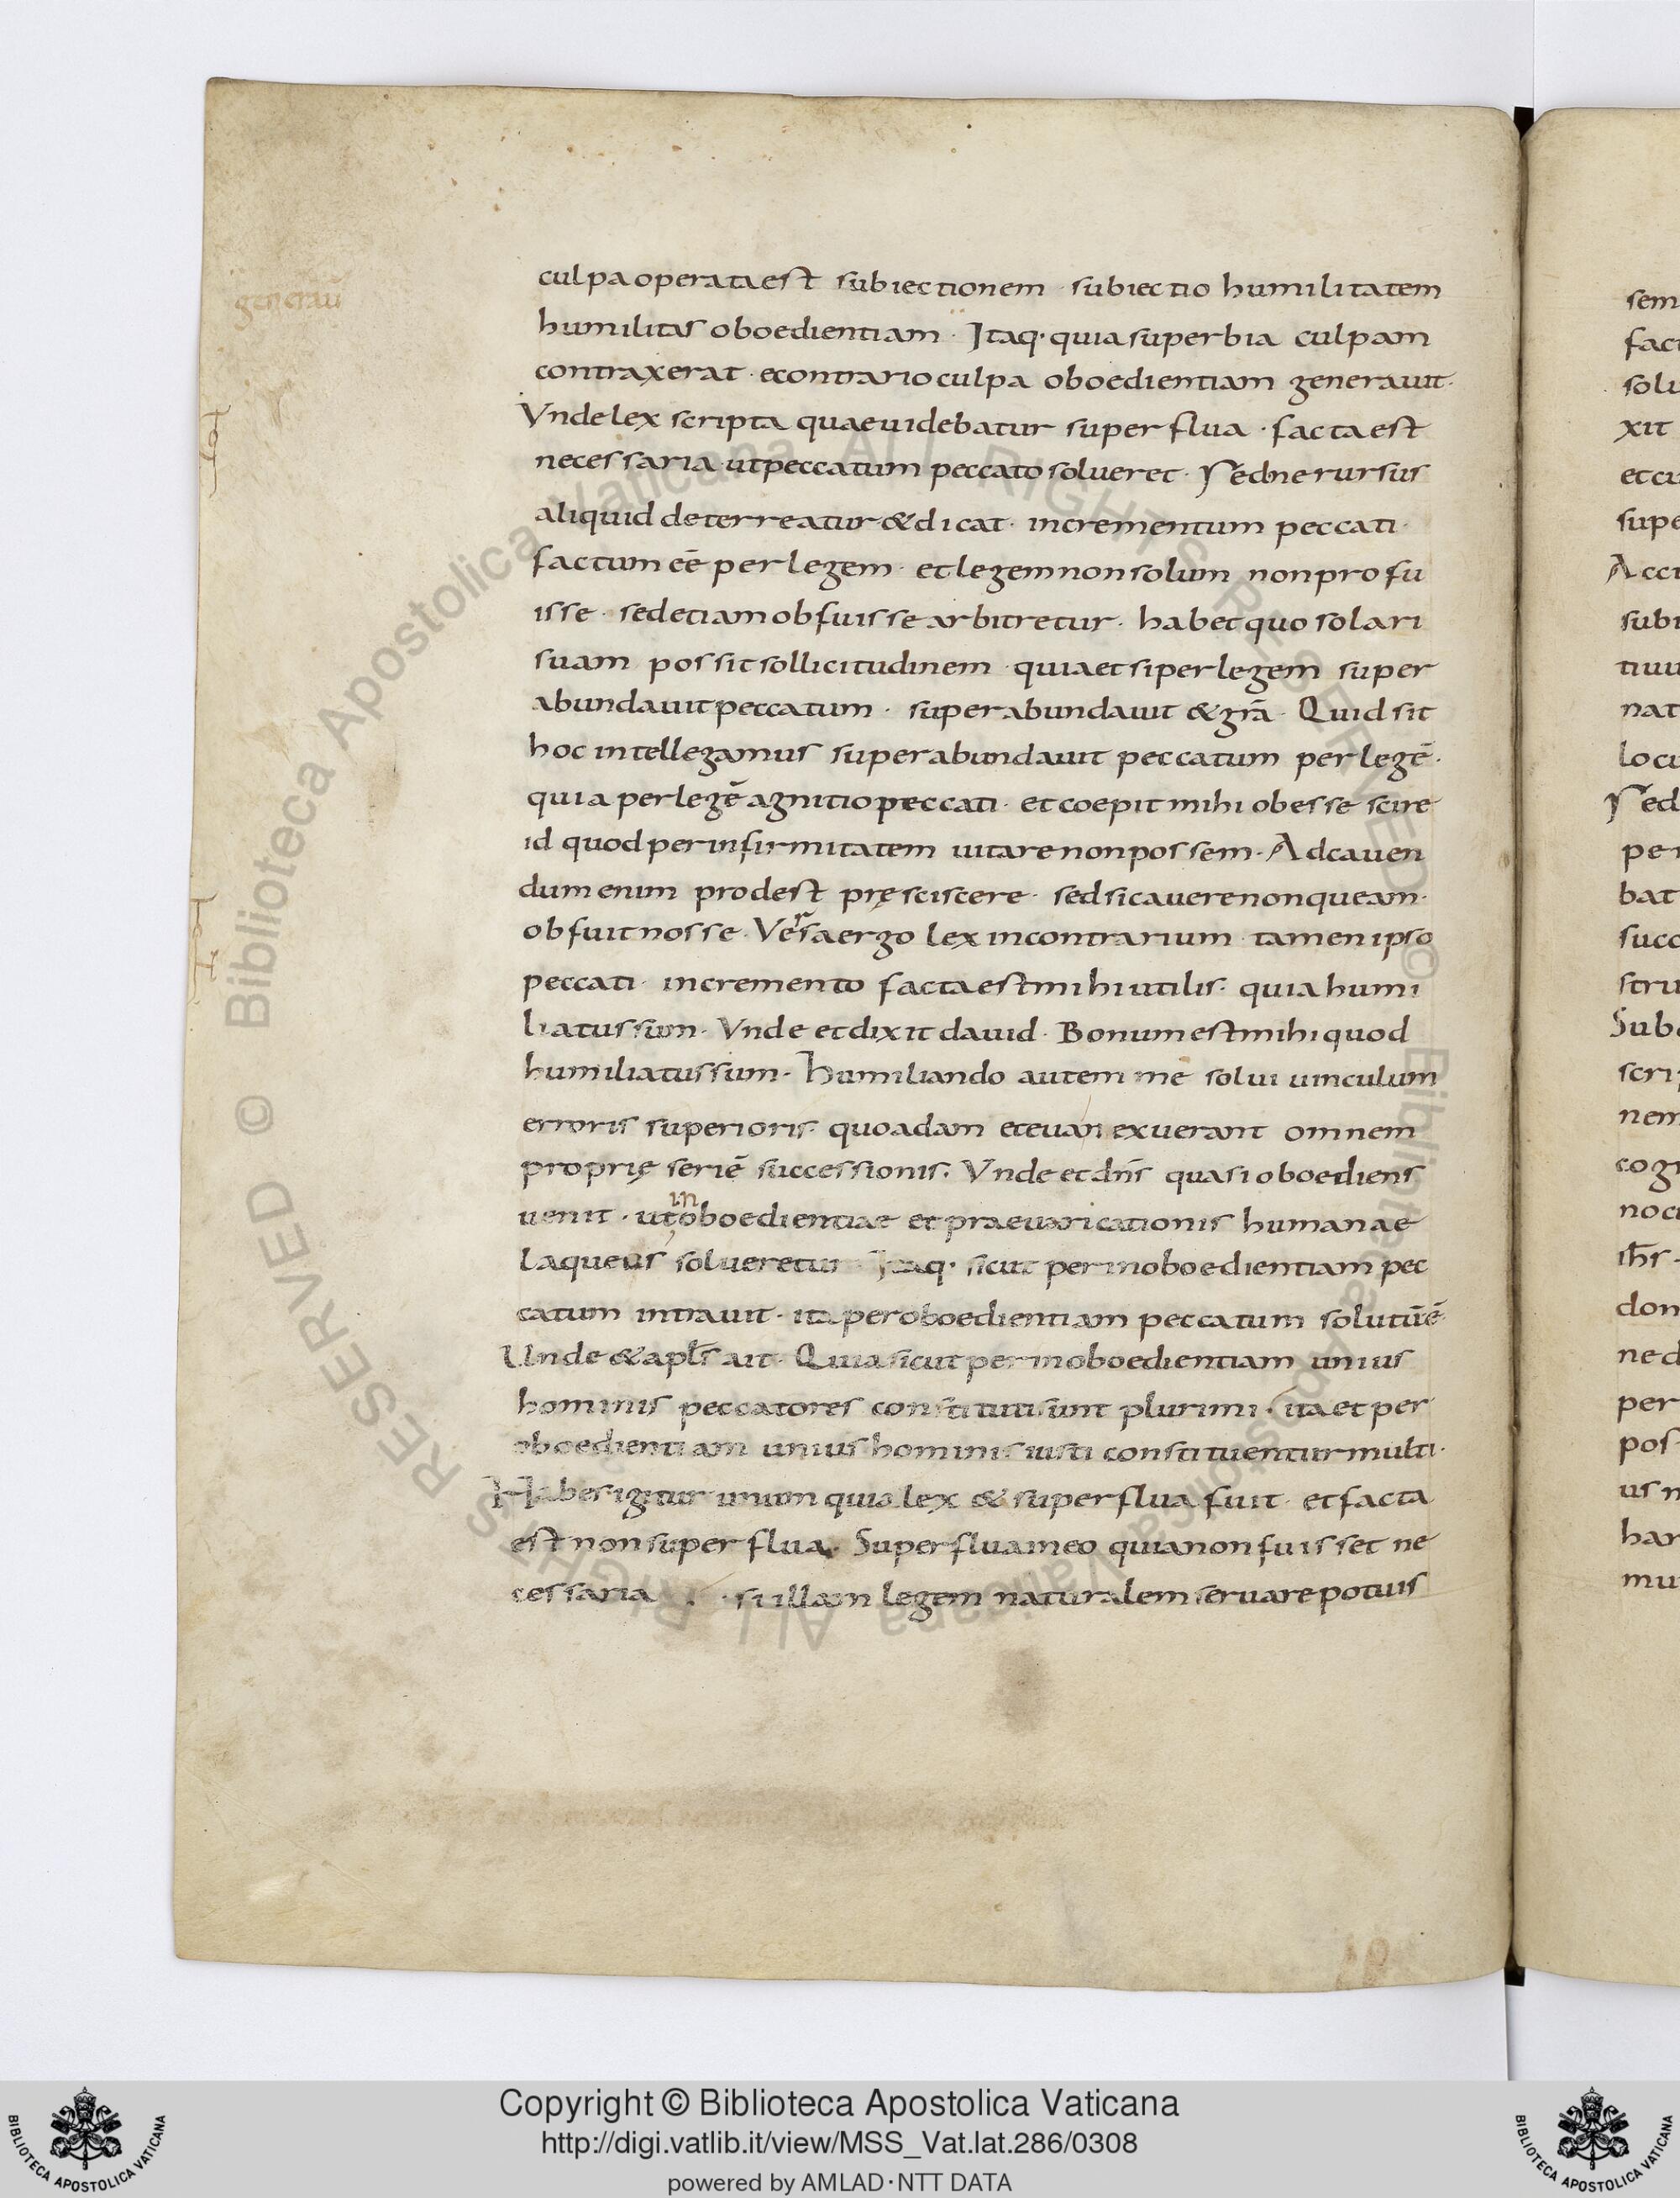 generau̅
culpa operata est subiectionem · subiectio humilitatem
humilitas oboedientiam · Itaq· quia superbia culpam
contraxerat · econtrario culpa oboedientiam generauit·
Vnde lex scripta quae uidebatur superflua · facta est
necessaria · ut peccatum peccato solueret · Sed ne rursus
aliquid deterreatur & dicat · incrementum peccati·
factum eē per legem · et legem non solum non profu
isse · sed etiam obfuisse arbitretur · habet quo solari
suam possit sollicitudinem · quia et si per legem super
abundauit peccatum · superabundauit & gr̄a · Quid sit
hoc intellegamus superabundauit peccatum per legē·
quia per legē agnitio peccati · et coepit mihi obesse scire
id quod per infirmitatem uitare non possem · Ad cauen
dum enim prodest pręsciscere · sed si cauere non queam·
obfuit nosse · Versa ergo lex in contrarium tamen ipso
peccati · incremento facta est mihi utilis · quia humi
liatus sum · Vnde et dixit dauid · Bonum est mihi quod
humiliatus sum · Humiliando autem me solui uinculum
erroris superioris · quo adam et euan exuerant omnem
proprię seriē successionis · Vnde et dn̄s quasi oboediens
uenit · ut inoboedientiae et praeuaricationis humanae
laqueus solueretur Itaq· sicut per inoboedientiam pec
catum intrauit · ita per oboedientiam peccatum solutū ē·
Unde & apl̄s ait · Quia sicut per inoboedientiam unius
hominis peccatores constituti sunt plurimi · ita et per
oboedientiam unius hominis iusti constituentur multi·
Habes igitur unum quia lex & superflua fuit · et facta
est non superflua · Superflua in eo quia non fuisset ne
cessaria · si illam legem naturalem seruare potuis
sem
fact
solu
xit
et cu
supe
Acci
subi
tiuu
nat
locu
Sed
per
bat
succ
stru
Sub
scrip
nem
cogn
noce
ih̄s
don
ne d
per
pos
us n
har
mu
© Biblioteca Apostolica Vaticana ALL RIGHTS RESERVED © Biblioteca Apostolica Vaticana ALL RIGHTS RESERVED
Copyright © Biblioteca Apostolica Vaticana
http://digi.vatlib.it/view/MSS_Vat.lat.286/0308
powered by AMLAD·NTT DATA
BIBLIOTECA APOSTOLICA VATICANA
BIBLIOTECA APOSTOLICA VATICANA